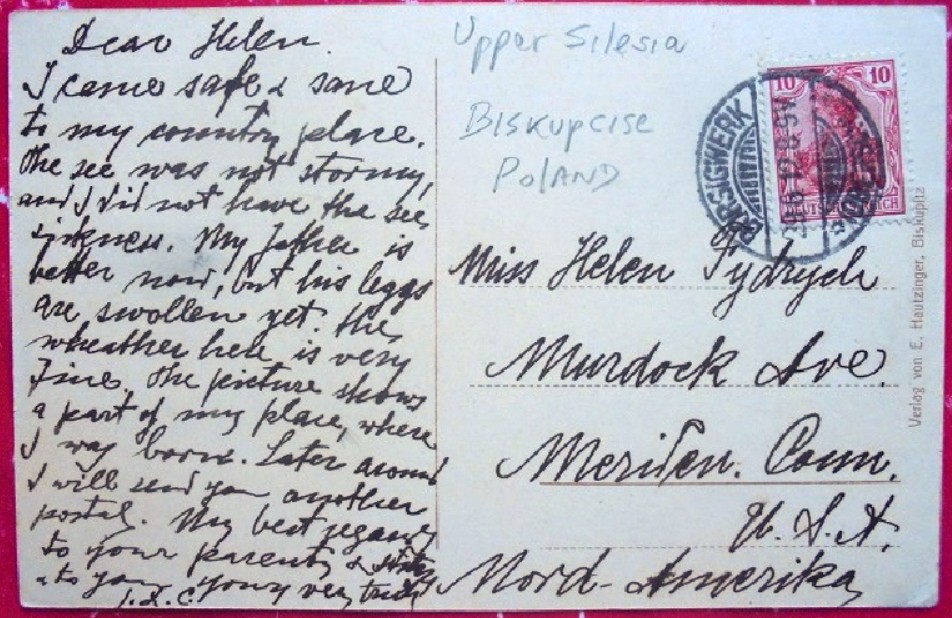 Dear Helen.
I came safe & sane
to my country place.
The see was not stormy,
and I did not have the see
sickness. My father is
better now, but his leggs
are swollen yet. the
wheather here is very
fine. The picture shows
a part of my place, where
I was born. Later around
I will send you another
postal. My best regards
to your parents &
to you yours very truly
Upper Silesia
Biskupcise
Poland
10 10
BORSIGWERK
Miss Helen Pydrych
Murdock Ave.
Meriden. Conn.
U. S. A.
Nord-Amerika
Verlag von E. Hautzinger, Biskupitz